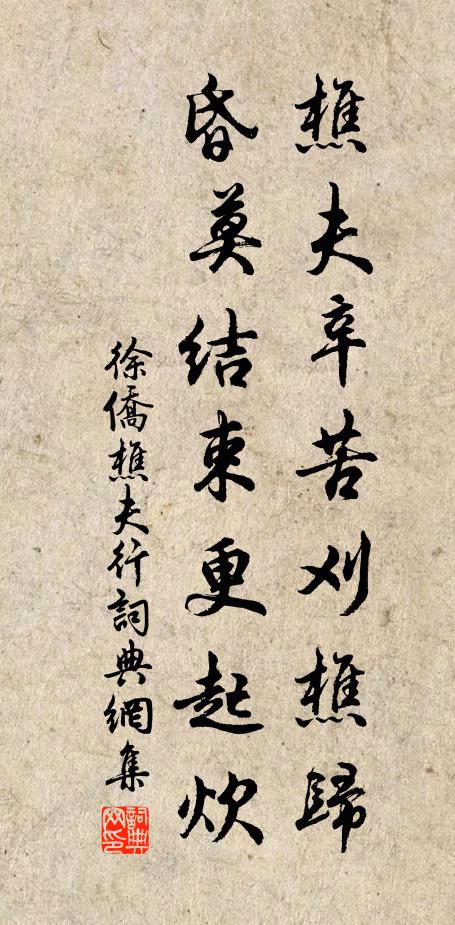 樵夫辛苦刈樵歸
昏莫結束更起炊
徐僑樵夫行詞典網集
詞典网印